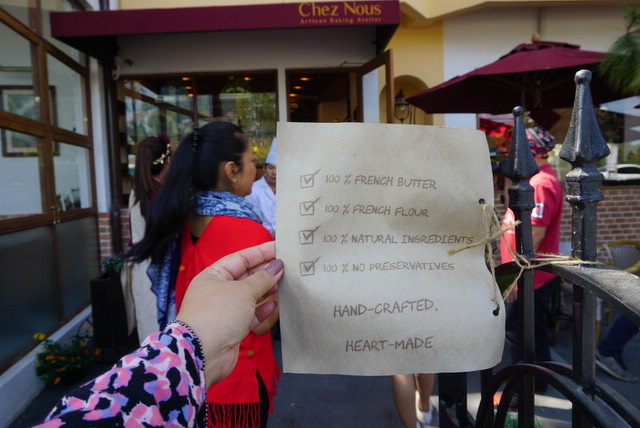 Chez Nous
Artisan Baking Atelier
100 % FRENCH BUTTER
100 % FRENCH FLOUR
100 % NATURAL INGREDIENTS
100 % NO PRESERVATIVES
HAND-CRAFTED,
HEART-MADE